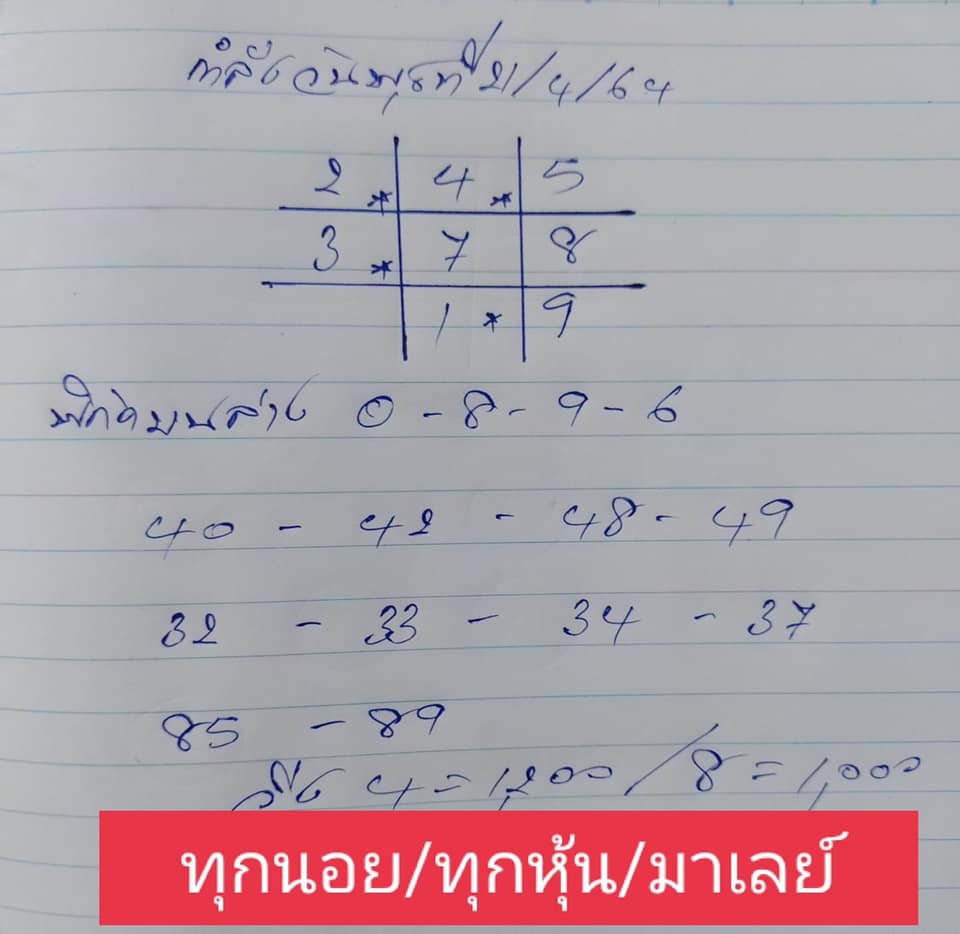 กำลังวันพุธที่ 21/4/64
2 * 4 * 5
3 * 7 8
1 * 9
พิกัดบนล่าง 0 - 8 - 9 - 6
40 - 42 - 48 - 49
32 - 33 - 34 - 37
85 - 89
4 = 1,200 / 8 = 1,000
ทุกนอย/ทุกหุ้น/มาเลย์